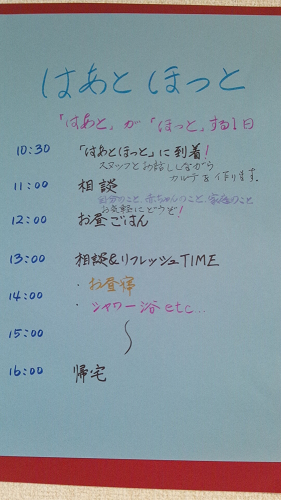 はあと ほっと
「はあと」が「ほっと」する1日
10:30 「はあとほっと」に到着!
スタッフとお話ししながら
カルテを作ります。
11:00 相談
自分のこと、赤ちゃんのこと、家庭のこと
お気軽にどうぞ!
12:00 お昼ごはん
13:00 相談&リフレッシュTIME
14:00 ・お昼寝
・シャワー浴 etc...
15:00 〜
16:00 帰宅